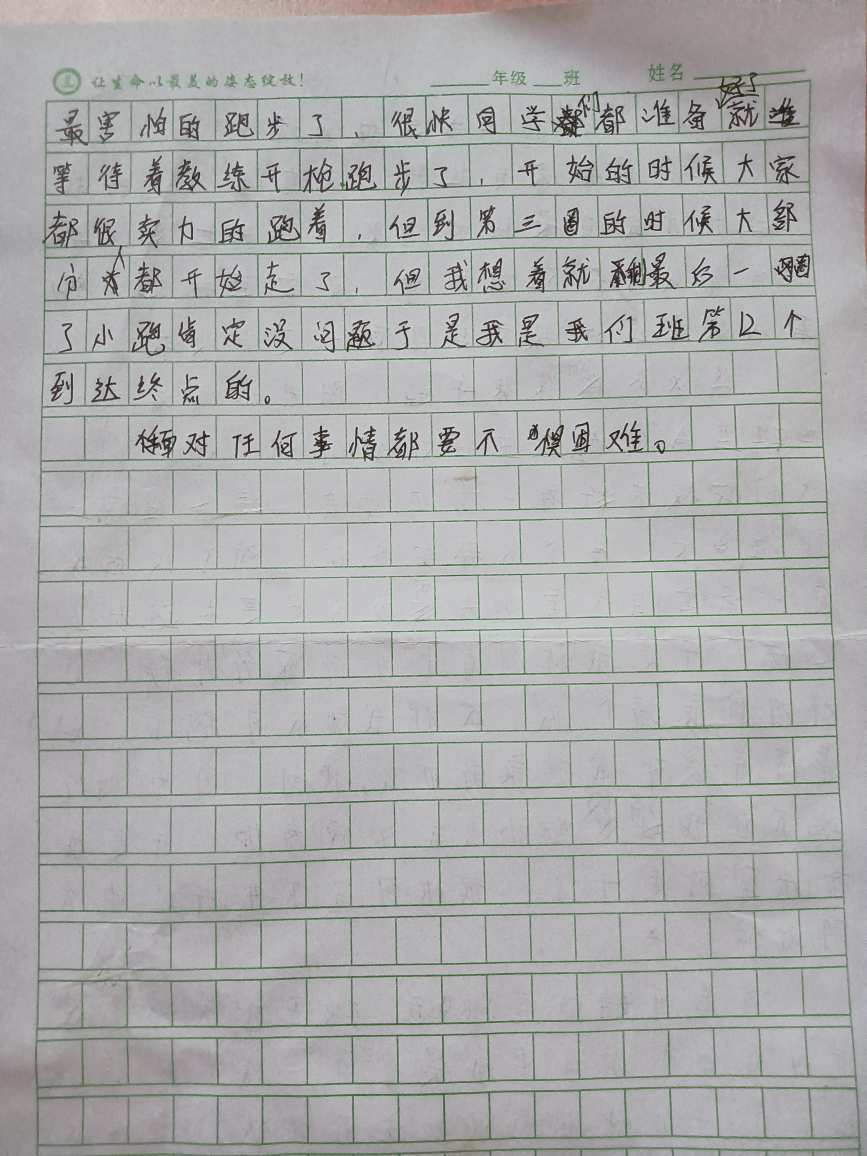 让生命以最美的姿态绽放！ 年级 班 姓名
最害怕的跑步了，很快同学们都准备好了就准
等待着教练开枪跑步了，开始的时候大家
都很卖力的跑着，但到第三圈的时候大部
分都开始走了，但我想着就剩最后一圈
了小跑肯定没问题于是我是我们班第12个
到达终点的。
面对任何事情都要不惧困难。